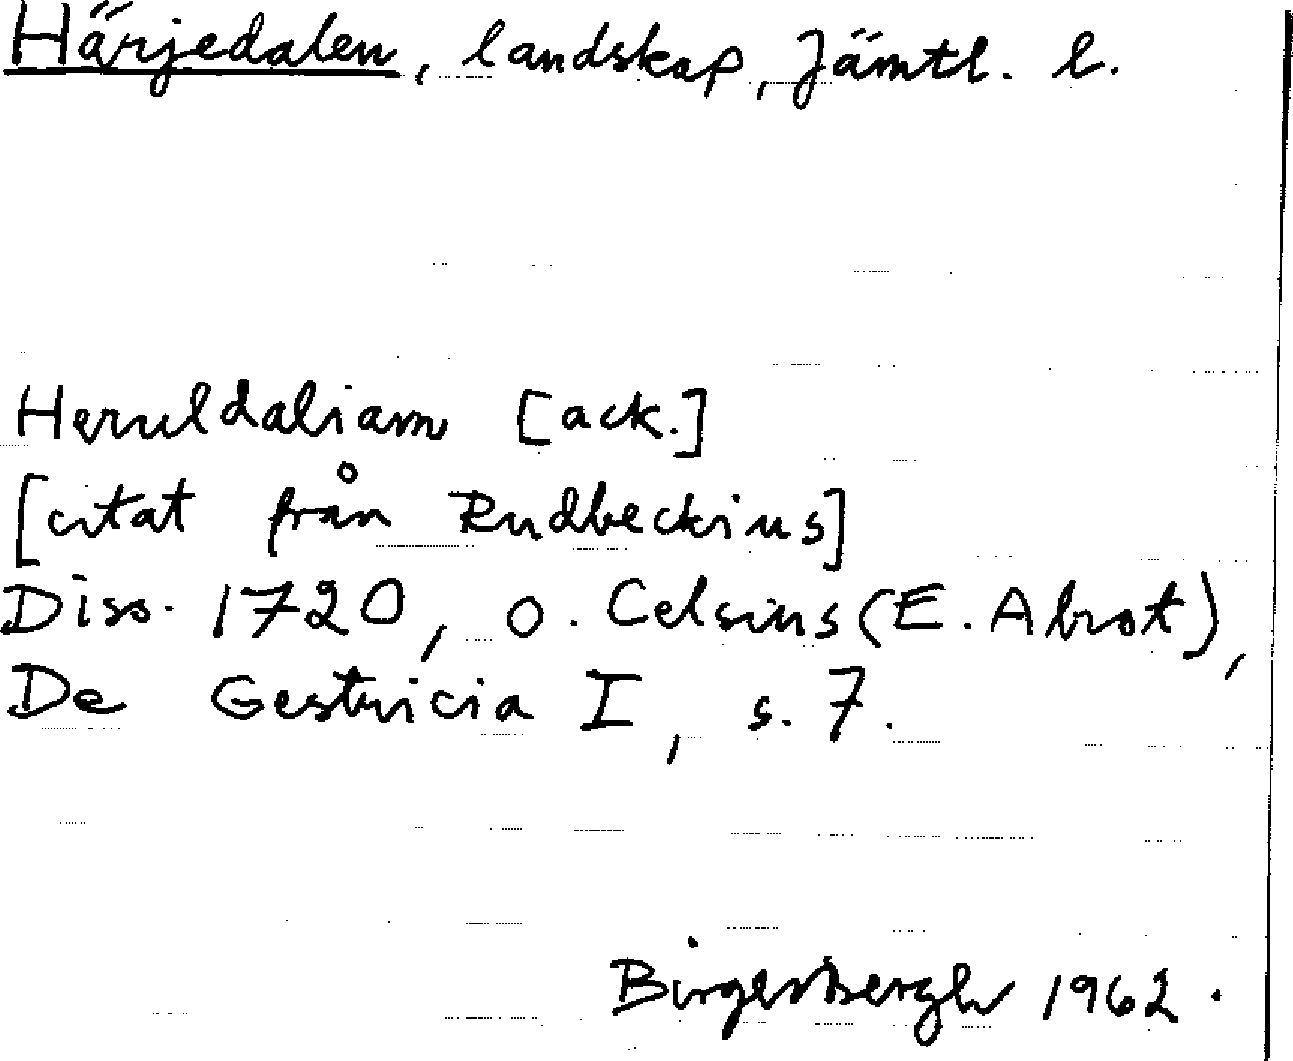 Härjedalen, landskap, Jämtl. l.
Heruldaliam [ack.]
[citat från Rudbeckius]
Diss. 1720, O. Celsius (E. Abrot),
De Gestricia I, s. 7.
Birger Bergh 1962.